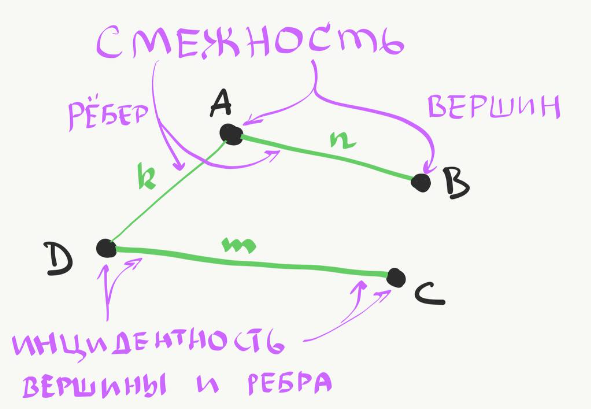 СМЕЖНОСТЬ
РЁБЕР
ВЕРШИН
A
n
B
k
D
m
C
ИНЦИДЕНТНОСТЬ
ВЕРШИНЫ И РЕБРА